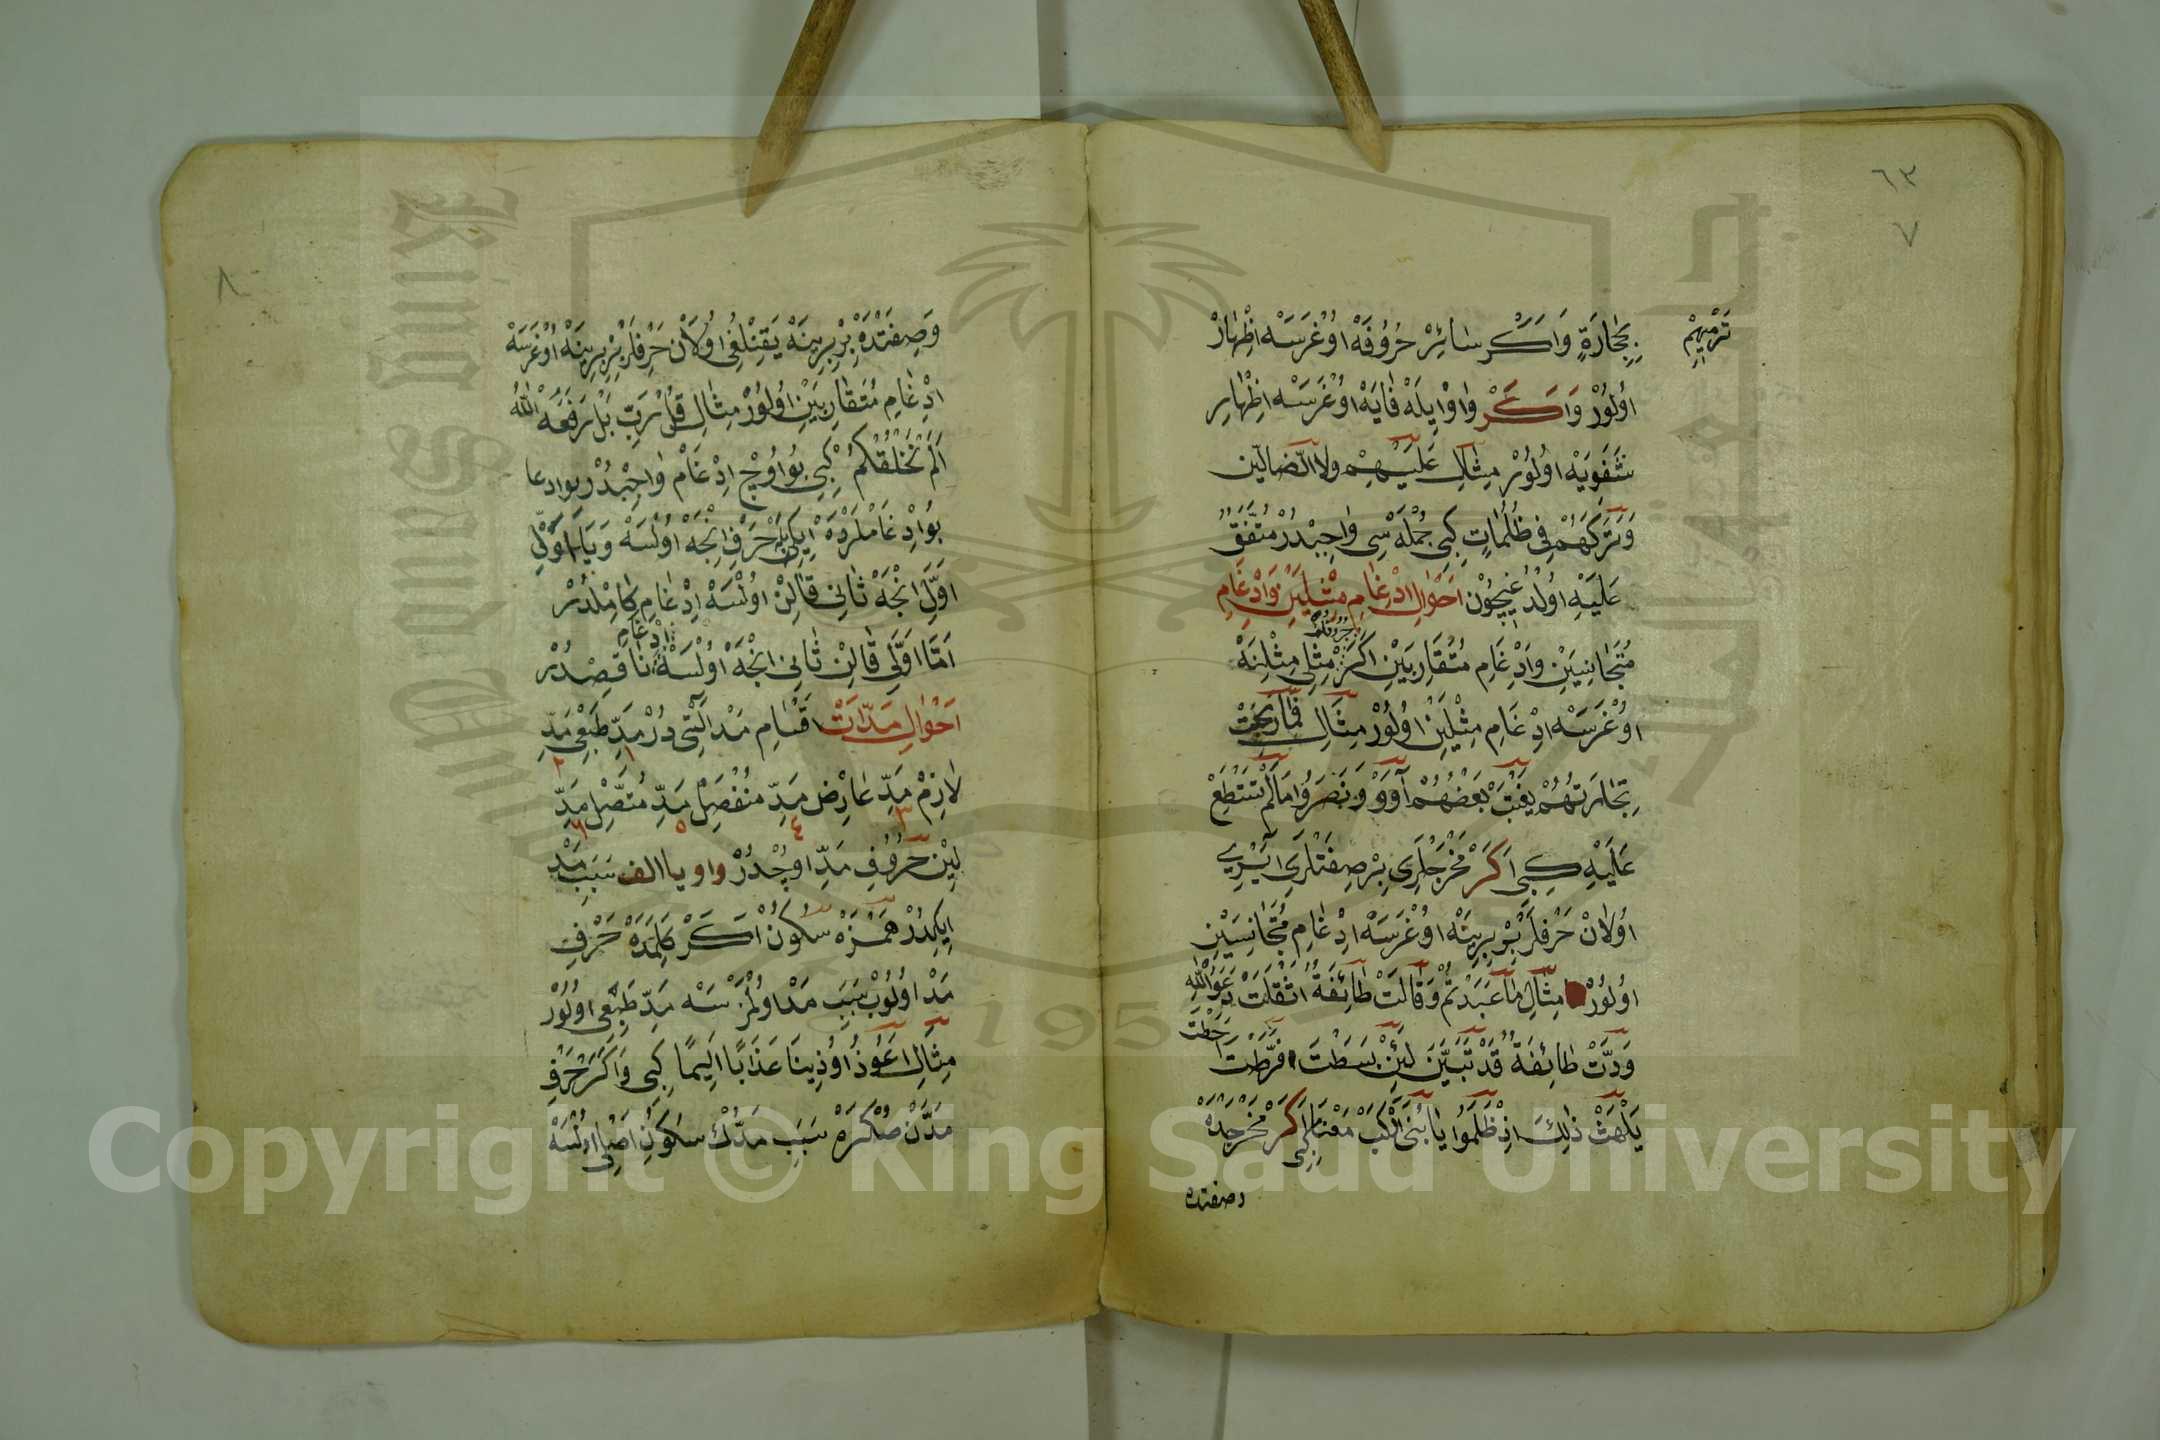 ٦٣
٧
تَرْمِيهِمْ
بِحِجَارَةٍ وَاَكَرْ سَائِرْ حُرُوفَهْ اوُغْرَسَهْ اِظْهَارْ
اوُلوُرْ وَاَكَرْ وَاوْ اِيلَهْ فَايَهْ اوُغْرَسَهْ اِظْهَارِ
شَفَوِيَهْ اوُلوُرْ مِثَالِ عَلَيْهِمْ ولا الضالين
وَتَرَكَهُمْ فِى ظُلُمَاتٍ كِبِى جُمْلَهْ سِى وَاجِبْدُرْ مُتَّفَقٌ
عَلَيْهِ اوُلْدُغِيچُونْ اَحْوَالِ ادْغَامِ مِثْلَيْنِ وَادْغَامِ
مُتَجَانِسَيْنِ وَادْغَامِ مُتَقَارِبَيْنِ اَكَرْ مِثْلِى مِثْلِنَهْ
اوُغْرَسَهْ ادْغَامِ مِثْلَيْنِ اوُلوُرْ مِثَالِ فَمَا رَبِحَتْ
تِجَارَتُهُمْ يَغْتَبْ بَعْضُهُمْ آوَوْ وَنَصَرُوا مَا لَمْ تَسْتَطِعْ
عَلَيْهِ كِبِى اَكَرْ مَخْرَجْلَرِى بِرْ صِفَتْلَرِى اَيْرِى
اوُلَانْ حَرْفلَرْ بِرْ بِرِينَهْ اوُغْرَسَهْ ادْغَامِ مُتَجَانِسَيْنِ
اوُلوُرْ مِثَالِ مَا عَبَدْتُمْ وَقَالَتْ طَائِفَةٌ اَثْقَلَتْ دَعَوَا اللّٰهَ
وَدَّتْ طَائِفَةٌ قَدْ تَبَيَّنَ لَئِنْ بَسَطْتَ فَرَّطْتُ اَحَطْتُ
يَلْهَثْ ذٰلِكَ اذْ ظَلَمُوا يَا بُنَىَّ ارْكَبْ مَعَنَا كِبِى اَكَرْ مَخْرَجْدَهْ
وصفتده
٨
وَصِفَتْدَهْ بِرْ بِرِينَهْ يَقِنْلِغِى اوُلَانْ حَرْفلَرْ بِرْ بِرِينَهْ اوُغْرَسَهْ
ادْغَامِ مُتَقَارِبَيْنِ اوُلوُرْ مِثَالِ قُلْ رَبِّ بَلْ رَفَعَهُ اللّٰهُ
اَلَمْ نَخْلُقْكُمْ كِبِى بُو اوُچْ ادْغَامْ وَاجِبْدُرْ بو ادغا
بُو ادْغَامْلَرْدَهْ اِيكِى حَرْفِ انْجَهْ اوُلْسَهْ وَيَا اَوَّلِى
اَوَّلِى انْجَهْ ثَانِى قَالِنْ اوُلْسَهْ ادْغَامِ كَامِلْدُرْ
اَمَّا اَوَّلِى قَالِنْ ثَانِى انْجَهْ اوُلْسَهْ ادْغَامِ نَاقِصْدُرْ
اَحْوَالِ مَدَّاتْ اَقْسَامِ مَدْ اَلْتِى دُرْ مَدِّ طَبَعْى مَدِّ
١ ٢
لَازِمْ مَدِّ عَارِضْ مَدِّ مُنْفَصِلْ مَدِّ مُتَّصِلْ مَدِّ
٣ ٤ ٥ ٦
لِيْنْ حُرُوفِ مَدِّ اوُچْدُرْ واو يا الف سَبَبِ مَدْ
اِيكِدُرْ هَمْزَهْ سُكُونْ اَكَرْ كَلِمَدَهْ حَرْفِ
مَدْ اوُلُوبْ سَبَبِ مَدْ اوُلْمَزْسَهْ مَدِّ طَبِعْى اوُلوُرْ
مِثَالِ اَعُوذُ اوُذِينَا عَذَابًا اَلِيمًا كِبِى وَاَكَرْ حَرْفِ
مَدَّنْ صُكْرَهْ سَبَبِ مَدْدُنْ سُكُونِ اَصْلِى اوُلْسَهْ
Copyright © King Saud University
King Saud University
1957